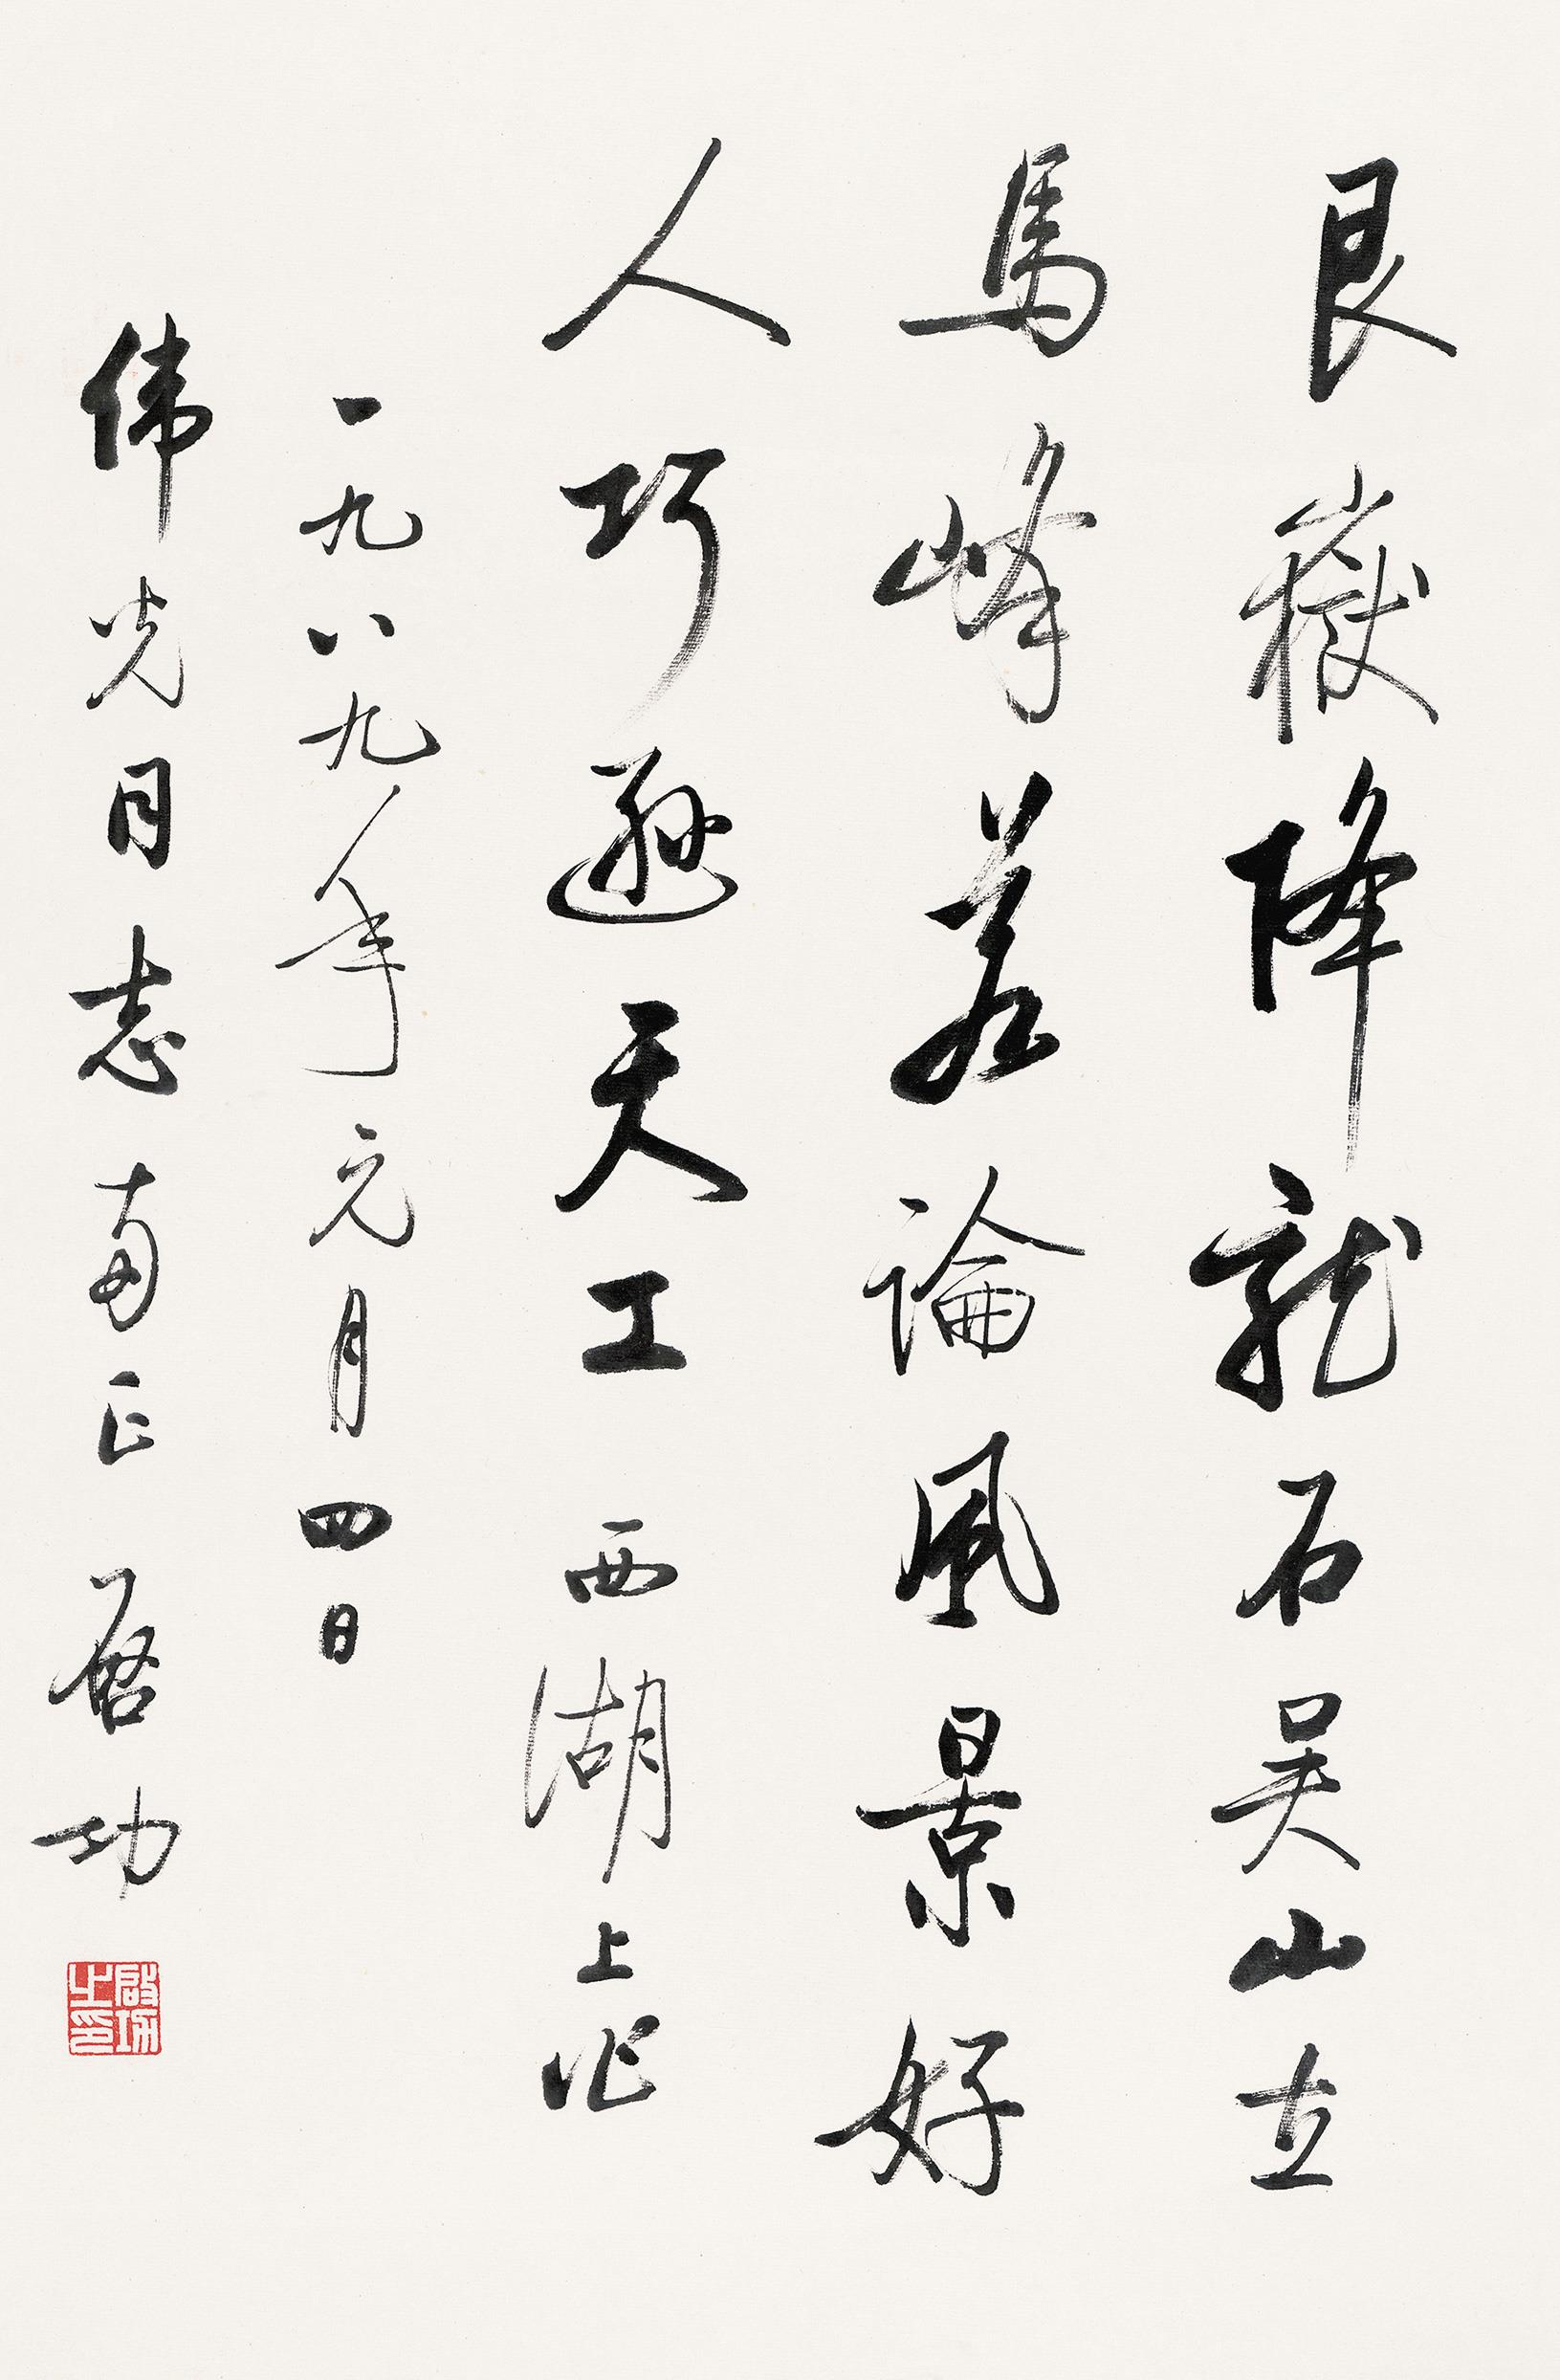 艮嶽降龍石吳山立
馬峰若論風景好
人巧遜天工 西湖上作
一九八九年元月四日
偉光同志兩正 启功
啟功之印